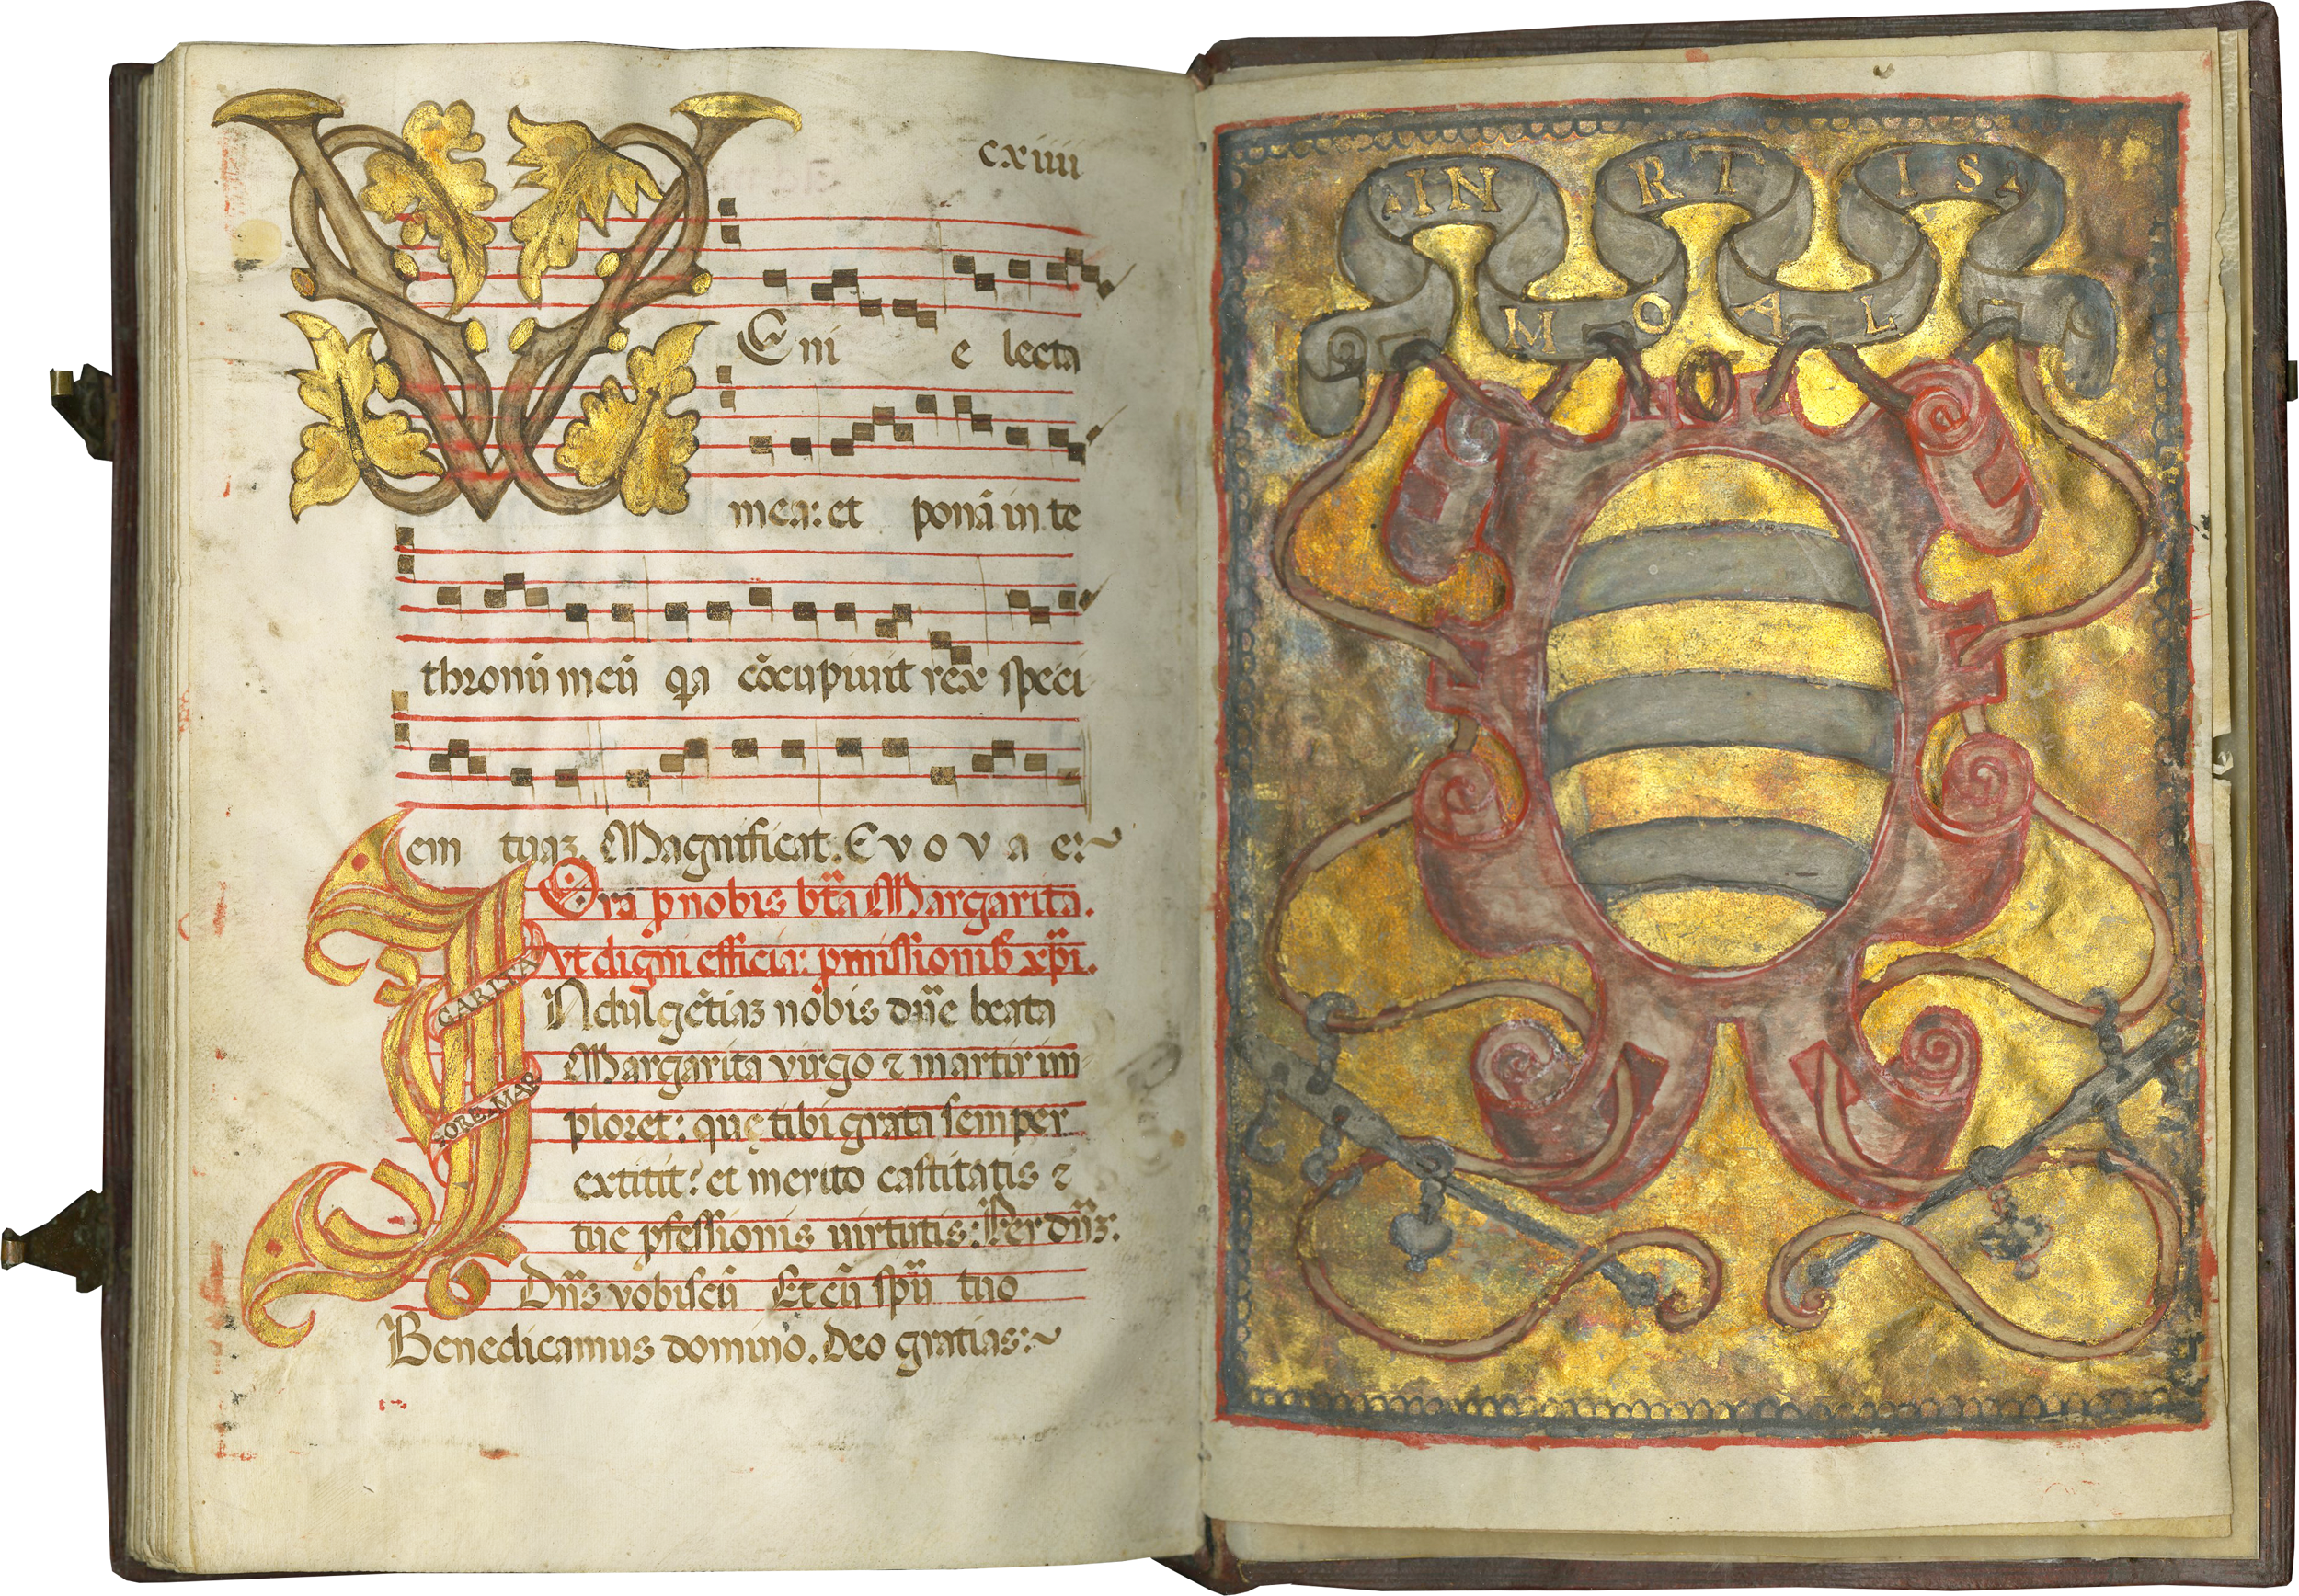 cxiiii
Eni e lecta
mea: et ponā in te
thronū meū qa cōcupiuit rex speci
em tuaꝫ. Magnificat. E v o v a e:~
Ora p nobis bta Margarita.
Vt digni efficia: pmissionibꝰ xpi.
Ndulgētiaꝫ nobis dñe beata
GARITA
Margarita virgo ⁊ martir im
SORE.MAR
ploret: quę tibi grata semper
extitit: et merito castitatis ⁊
tue pfessionis uirtutis: Per dñꝫ:
Dñs vobiscū Et cū spū tuo
Benedicamus domino. Deo gratias:~
IN RT IS
M O A L